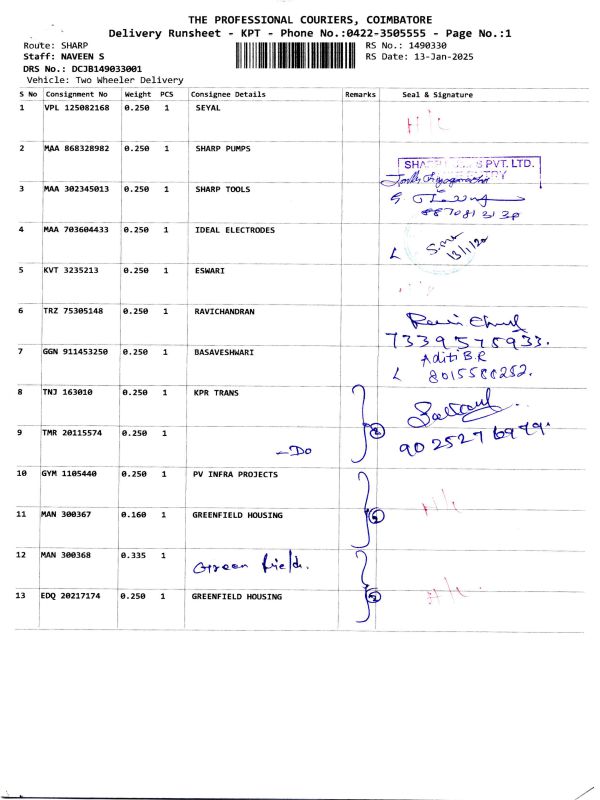 THE PROFESSIONAL COURIERS, COIMBATORE
Delivery Runsheet - KPT - Phone No.:0422-3505555 - Page No.:1
Route: SHARP RS No.: 1490330
Staff: NAVEEN S RS Date: 13-Jan-2025
DRS No.: DCJB149033001
Vehicle: Two Wheeler Delivery
S No Consignment No Weight PCS Consignee Details Remarks Seal & Signature
1 VPL 125082168 0.250 1 SEYAL H/C
2 MAA 868328982 0.250 1 SHARP PUMPS
SHARP PVT. LTD.
3 MAA 302345013 0.250 1 SHARP TOOLS
4 MAA 703604433 0.250 1 IDEAL ELECTRODES
5 KVT 3235213 0.250 1 ESWARI
6 TRZ 75305148 0.250 1 RAVICHANDRAN
7339578933.
7 GGN 911453250 0.250 1 BASAVESHWARI Aditi B.R
8015588252.
8 TNJ 163010 0.250 1 KPR TRANS
9 TMR 20115574 0.250 1
-Do
9025276979.
10 GYM 1105440 0.250 1 PV INFRA PROJECTS
11 MAN 300367 0.160 1 GREENFIELD HOUSING H/C
12 MAN 300368 0.335 1 Green field.
13 EDQ 20217174 0.250 1 GREENFIELD HOUSING H/C